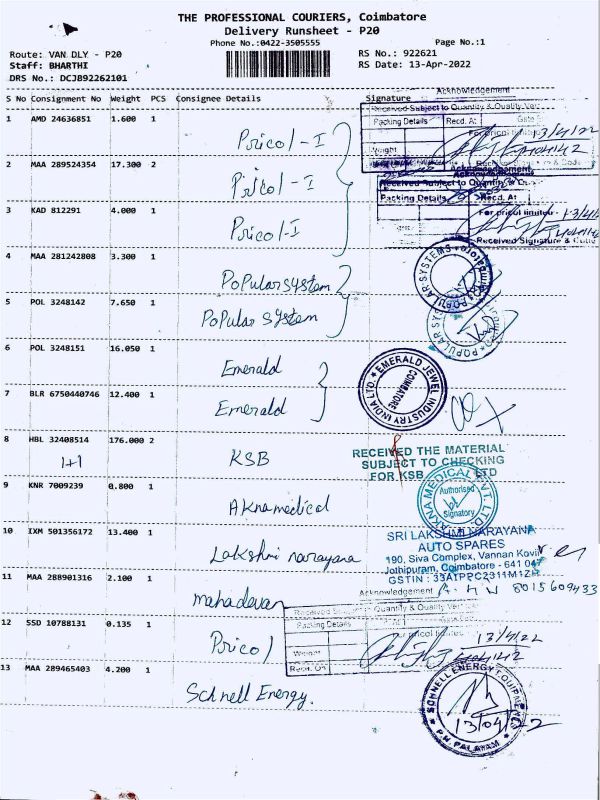 THE PROFESSIONAL COURIERS, Coimbatore
Delivery Runsheet - P20
Phone No.:0422-3505555 Page No.:1
Route: VAN DLY - P20 RS No.: 922621
Staff: BHARTHI RS Date: 13-Apr-2022
DRS No.: DCJB92262101
Acknowledgement
S No Consignment No Weight PCS Consignee Details Signature
Received Subject to Quantity & Quality
Packing Details Recd. At
1 AMD 24636851 1.600 1 Pricol-I
For pricol limited 13/4/22
Weight
2 MAA 289524354 17.300 2 Pricol-I
Acknowledgement
Received Subject to Quantity &
Packing Details Recd. At
3 KAD 812291 4.000 1 Pricol-I
For pricol limited
Received Signature &
4 MAA 281242808 3.300 1 Popular system
POPULAR SYSTEMS
5 POL 3248142 7.650 1 Popular system
POPULAR
6 POL 3248151 16.050 1 Emerald
EMERALD JEWEL INDUSTRY INDIA LTD.
COIMBATORE
7 BLR 6750440746 12.400 1 Emerald
8 HBL 32408514 176.000 2 KSB
1+1
RECEIVED THE MATERIAL
SUBJECT TO CHECKING
FOR KSB LTD
9 KNR 7009239 0.800 1 Aknamedical
AKNA MEDICAL PVT. LTD.
Authorised
Signatory
10 IXM 501356172 13.400 1 Lakshmi narayana
SRI LAKSHMI NARAYANA
AUTO SPARES
190, Siva Complex, Vannan Kovil
Jothipuram, Coimbatore - 641 047
GSTIN : 33AIPPC2311M1ZH
11 MAA 288901316 2.100 1 mahadevan
Acknowledgement 8015609433
Received Quantity & Quality
Packing Details
12 SSD 10788131 0.135 1 Pricol
For pricol limited 13/4/22
Weight
Recd. On
13 MAA 289465403 4.200 1 Schnell Energy.
SCHNELL ENERGY EQUIPMENTS
13/04/22
P.N. PALAYAM